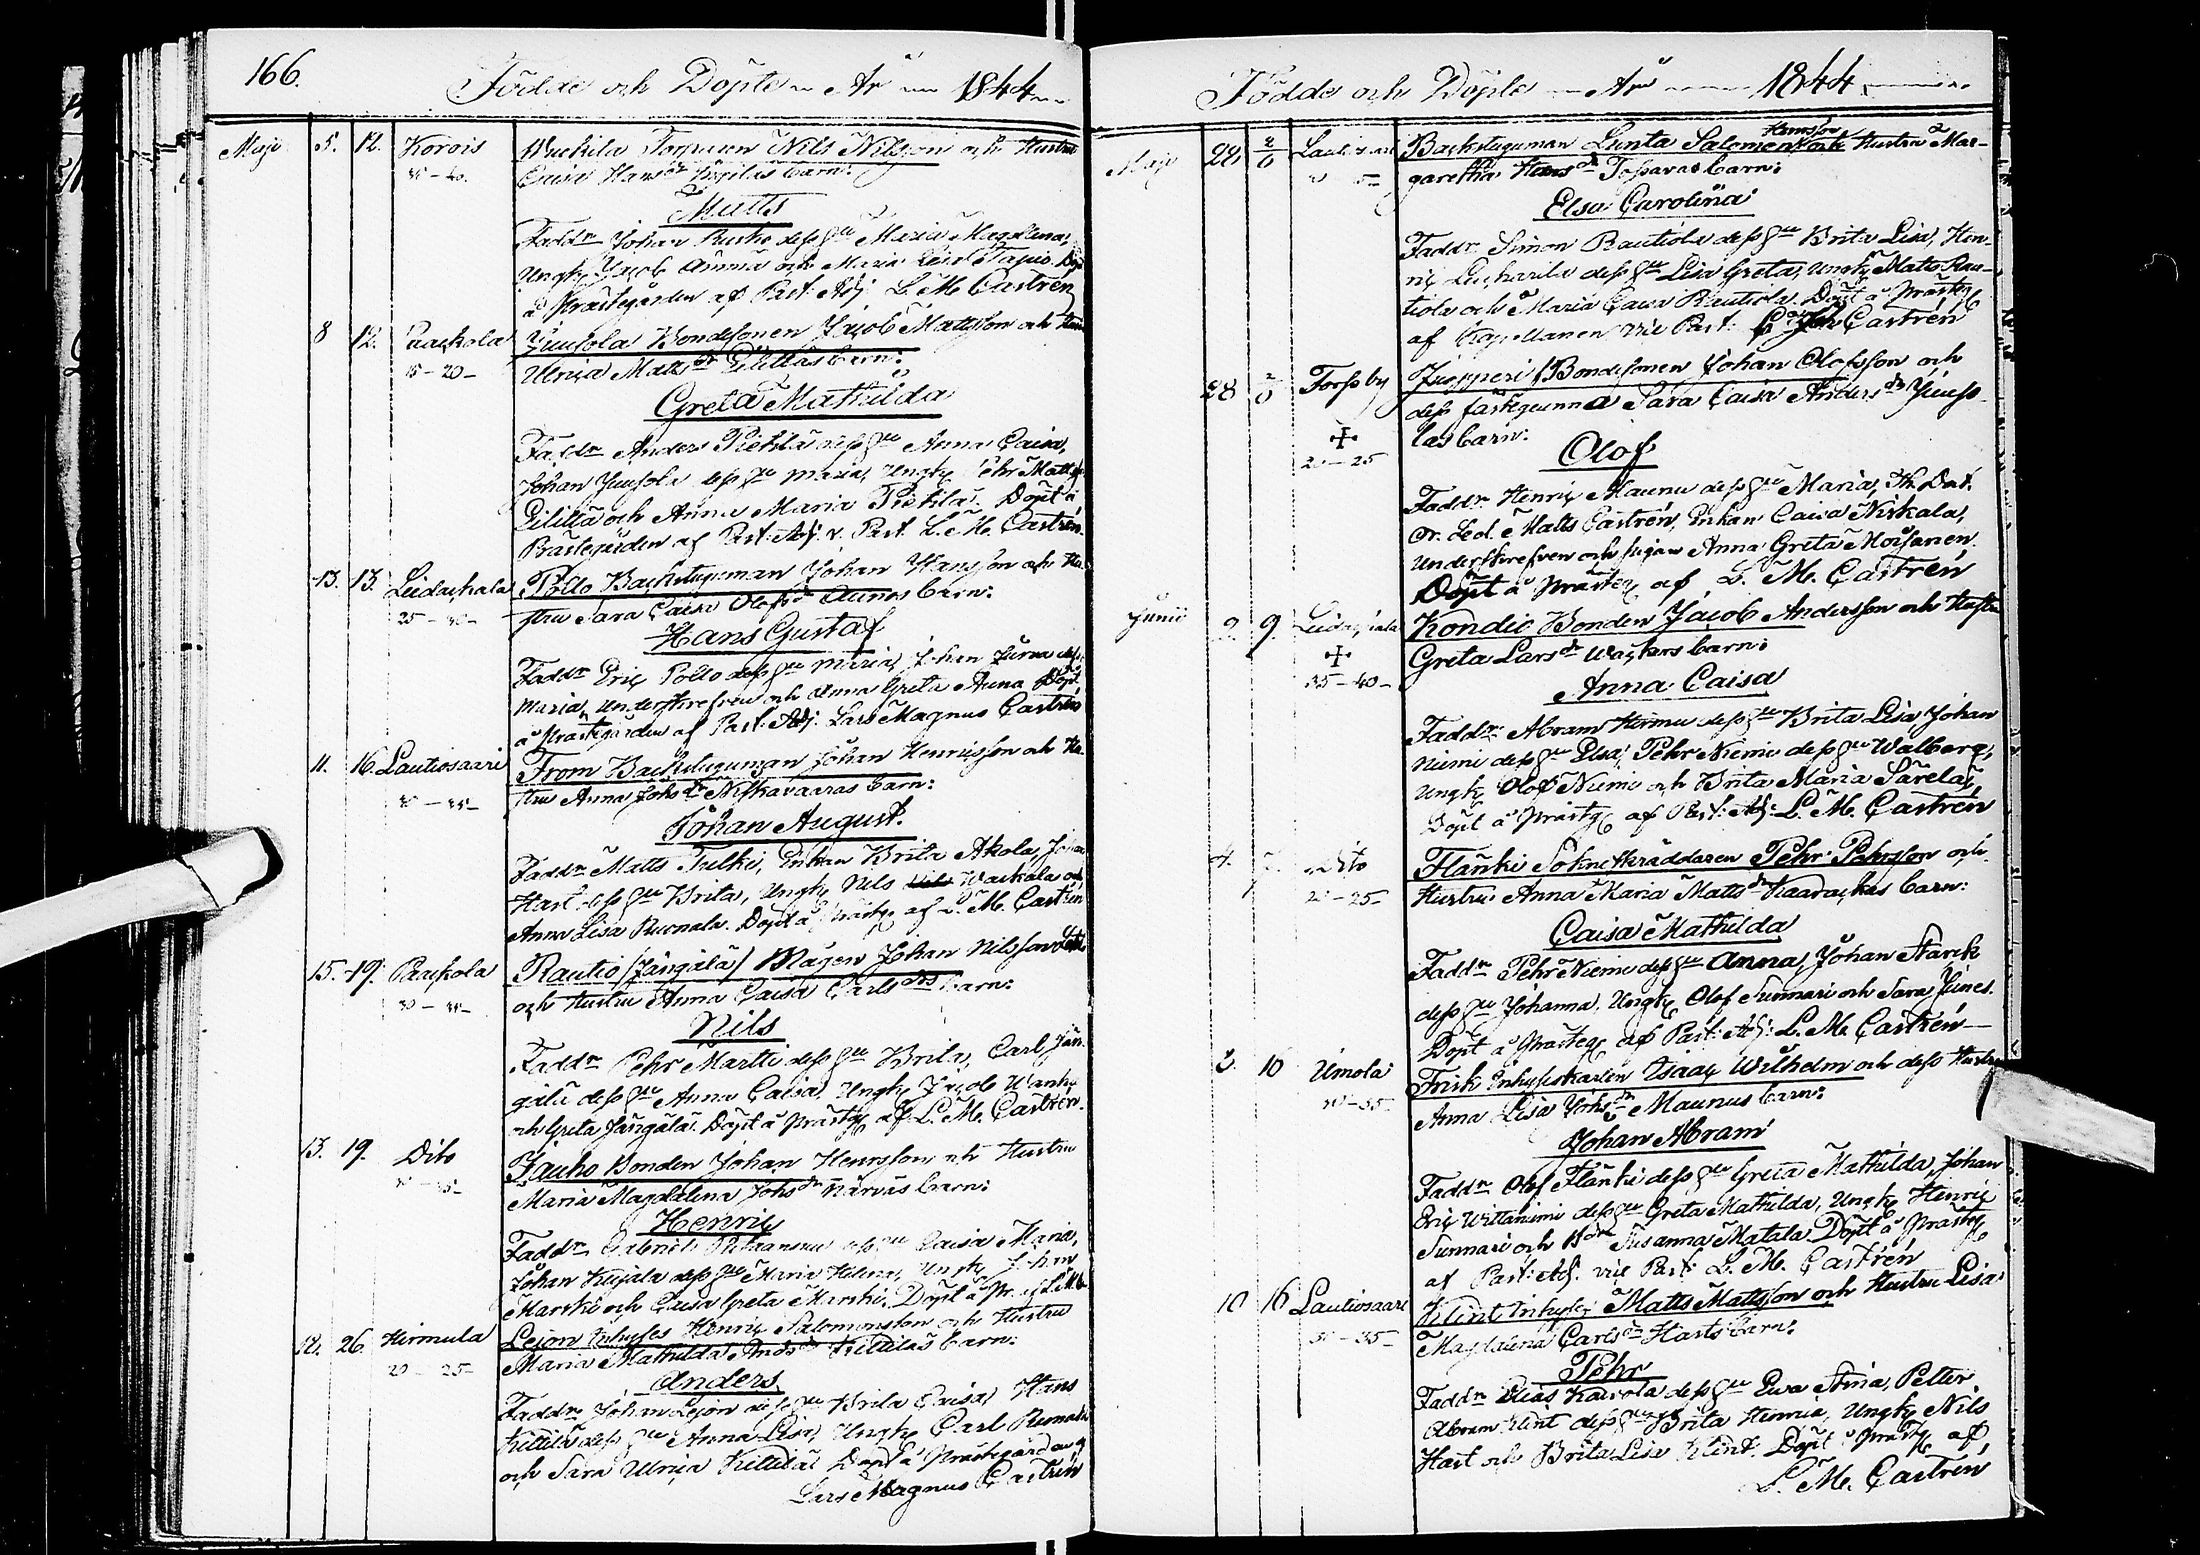 166.
Födde och Döpte År 1844
Maji 5. 12. Korois Torparen Nils Nilsson och Hustru
Caisa Hansdr barn:
Matts
Faddr Johan Ruska dess hu Maria Magdalena,
Ungk Jacob och Maria Döpt
å Prästegården af Past: Adj. L. M. Castrén
8 12. Paackola Juusola Bondesonen Jacob Mattsson och
15-20- Ulrica Matts dr barn:
Greta Mathilda
Faddr Anders Pietilä dess hu Anna Caisa,
Johan Juusola dess hu Maria, Ungk Pehr
och Anna Maria Pietilä. Döpt å
Prästegården af Past. Adj. v. Past. L. M. Castrén.
13. 13. Liedackala Pollo Backstuguman Johan Hansson och Hu-
25-30- stru Sara Caisa Olofsdr Aunos barn:
Hans Gustaf
Faddr Eric Pollo dess hu Maria, Johan dess
Maria, Understrefven och Anna Greta Auna Döpt
å Prästegården af Past. Adj. Lars Magnus Castrén
11. 16. Lautiosaari From Backstuguman Johan Henricsson och Hu-
stru Anna Johs dr Niskavaaras barn:
Johan August.
Faddr Matts Tulki, Enkan Brita Akola, Johan
Hast dess hu Brita, Ungk Nils och
Anna Lisa Ruonala. Döpt å Prästg af L. M. Castrén
15. 19. Paackola Rautio (Jängälä) Mågen Johan Nilsson
och Hustru Anna Caisa Carls drs barn:
Nils
Faddr Pehr Martti dess hu Brita, Carl Jän-
gälä dess hu Anna Caisa, Ungk Jacob
och Greta Jängälä. Döpt å Prästg af L. M. Castrén.
13. 19. Dito Jauho Bonden Johan Henrsson och Hustru
Maria Magdalena Johs dr Närväs barn:
Henric
Faddr Gabriel dess hu Caisa Maria,
Johan Kujala dess hu Maria Helena, Ungk Johan
Marski och Caisa Greta Marski. Döpt å Pr. af L. M. C.
12. 26. Kirmula Lejon Inhyses Henric Salomonsson och Hustru
20-25- Maria Mathilda Ands dr Kittiläs barn:
Anders
Faddr Johan Lejon dess hu Brita Caisa, Hans
Kittilä dess hu Anna Lisa, Ungk Carl Ruonala
och Sara Ulrica Kittilä Döpt å Prästegården af
Lars Magnus Castrén
Födde och Döpte År 1844
Maji 28 2/6 Lautiosaari Backstuguman Lunta Salomon Hansson och Hustru Mar-
garetha Hans dr Tossavas barn:
Elsa Carolina
Faddr Simon Rautiola dess hu Brita Lisa, Hen-
ric dess hu Lisa Greta, Ungk Matts Rau-
tiola och Maria Caisa Rautiola. Döpt å Prästg
af Capellanen vice Past: Castrén
28 2/6 Torpby Juopperi Bondesonen Johan Olofsson och
dess fästeqvinna Sara Caisa Anders dr
20-25 las barn:
Olof
Faddr Henric Maunu dess hu Maria,
Matts Castrén, Enkan Caisa Niskala,
Understrefven och pigan Anna Greta Moisanen
Döpt å Prästg af L. M. Castrén
Junii 2. 9. Liedackala Kondic Bonden Jacob Andersson och Hustru
Greta Lars dr barn:
35-40-
Anna Caisa
Faddr Abram dess hu Brita Lisa, Johan
Niemi dess hu Elsa, Pehr Niemi dess hu Walberg,
Ungk Olof Niemi och Brita Maria Särelä,
Döpt å Prästg af Past: Adj: L. M. Castrén
4. Dito Flanki Sockneskräddaren Pehr Pehrsson och
20-25- Hustru Anna Maria Matts dr barn:
Caisa Mathilda
Faddr Pehr Niemi dess hu Anna, Johan Starck
dess hu Johanna, Ungk Olof Sunnari och Sara Junes.
Döpt å Prästg af Past. Adj: L. M. Castrén
3. 10 Uimola Frisk Inhyseskarlen Isaac Wilhelm och dess Hustru
Anna Lisa Johs dr Maunus barn:
Johan Abram
Faddr Olof Flänki dess hu Greta Mathilda, Johan
Eric Wittaniemi dess hu Greta Mathilda, Ungk Henric
Sunnari och Susanna Matala Döpt å Prästg
af Past. Adj. vice Past: L. M. Castrén
10 16 Lautiosaari Klint Inhyses Matts Mattsson och Hustru Lisa
Magdalena Carls dr Hasts barn:
Pehr
Faddr Elias dess hu Ewa Stina, Petter
Abram Klint dess hu Brita Henrica, Ungk Nils
Hast och Brita Lisa Klint. Döpt å Prästg af
L. M. Castrén